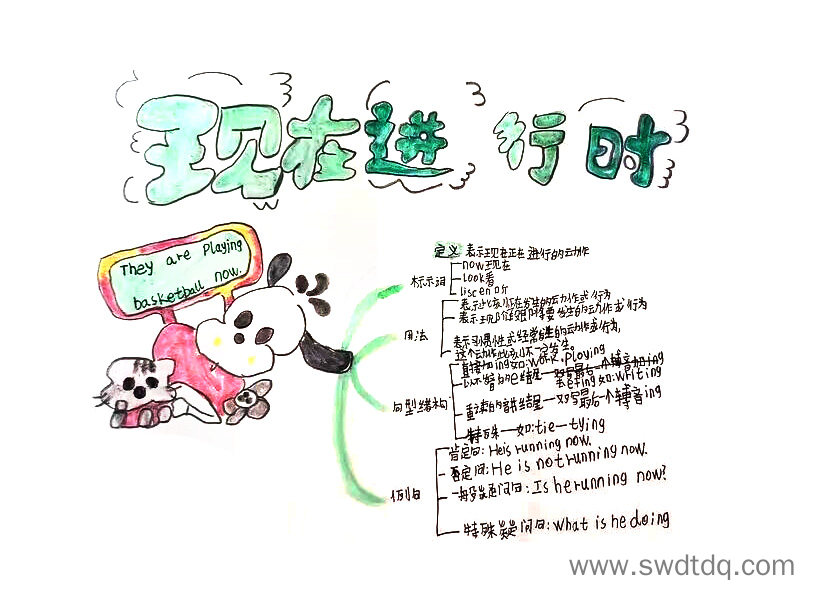 现在进行时
They are Playing
basketball now.
定义 表示现在正在进行的动作
标示词
now现在
Look看
liscen听
用法
表示此刻你在发生的动作或行为
表示现阶段即将要发生的动作或行为
表示习惯性或经常性的动作或行为,
这个动作此刻不一定发生
句型结构
直接加ing如:work.ploying
去e加ing如:writing
重读的音节结尾一双写最后一个辅音ing
特殊一如:tie—tying
例句
肯定句: Heis running now.
否定问: He is notrunning now.
一般疑问句: Is herunning now?
特殊疑问句: what is he doing
www.swdtdq.com